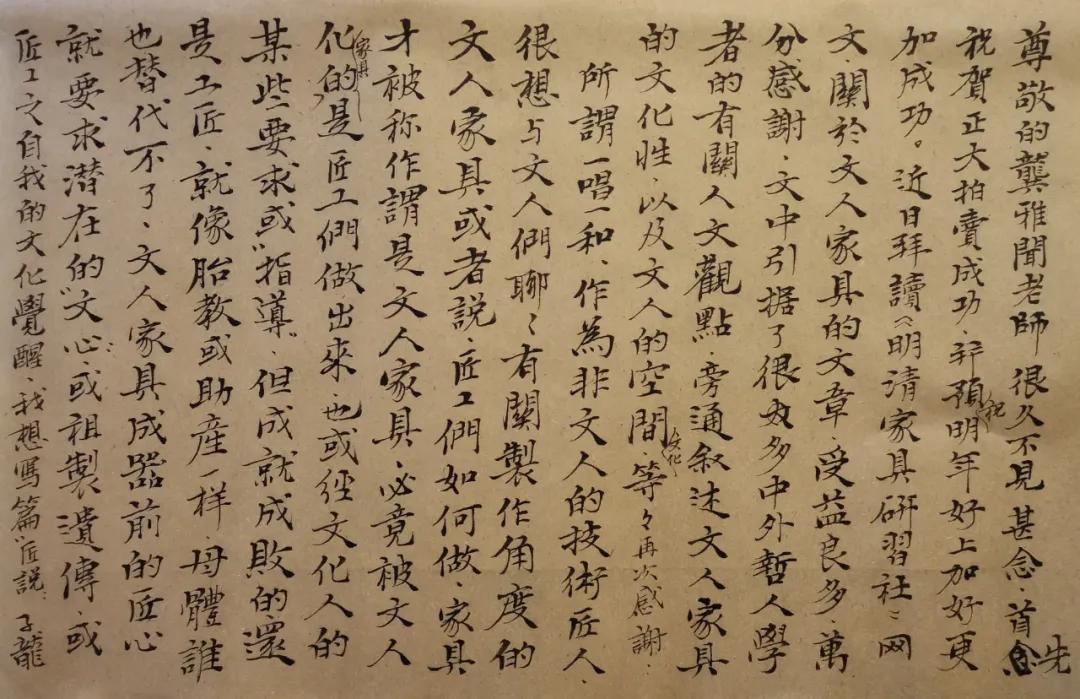 尊敬的龔雅聞老師很久不見甚念、首先
祝賀正大拍賣成功、并預祝明年好上加好更
加成功。近日拜讀《明清家具研習社》网
文、關於文人家具的文章、受益良多、萬
分感謝、文中引据了很多中外哲人學
者的有關人文觀點、旁通叙述文人家具
的文化性、以及文人的空間文化、等々再次感謝、
所謂一唱一和、作為非文人的技術匠人、
很想与文人們聊々有關製作角度的
文人家具或者說、匠工們如何做、家具
才被称作謂是文人家具、必竟被文人
化的家具是匠工們做出來、也或經文化人的
某些要求或"指導"、但成就成敗的還
是工匠、就像胎教或助産一样、母體誰
也替代不了、文人家具成器前的匠心
就要求潜在的"文心"或祖製遺傳、或
匠工之自我的文化覺醒、我想寫篇"匠説" 子龍